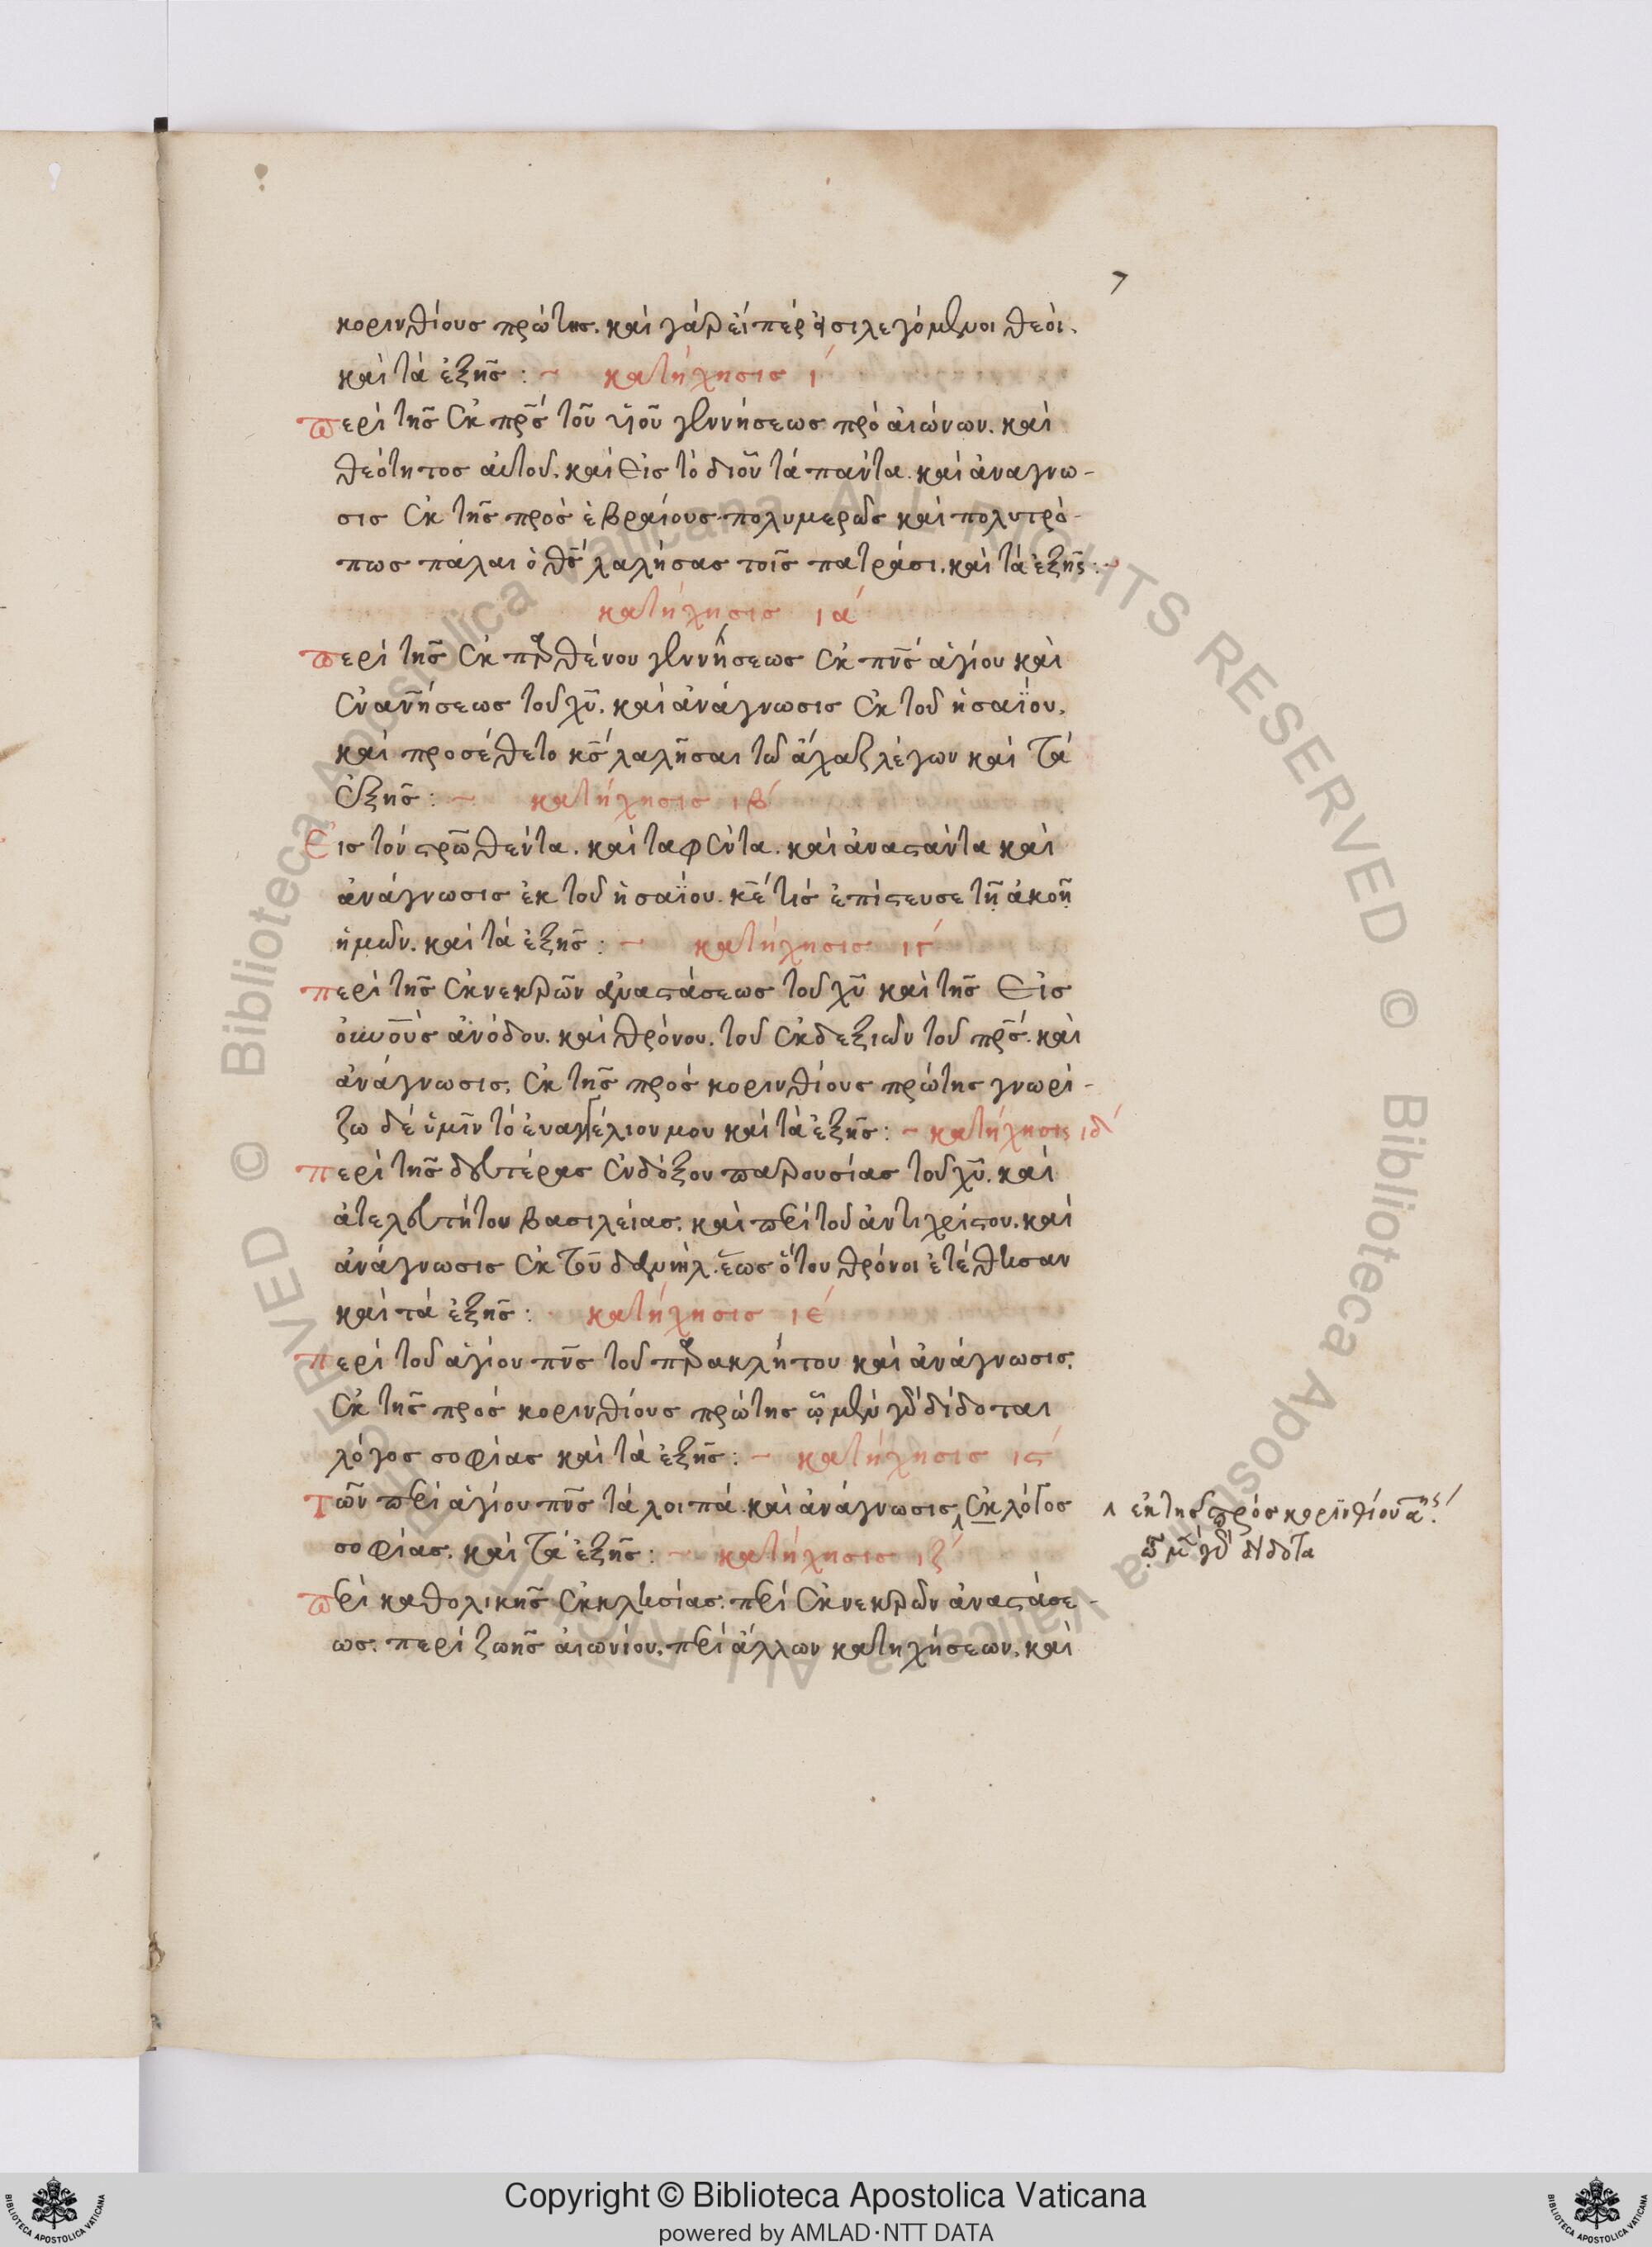 7
κορινθίους πρώτης. καὶ γὰρ εἴπέρ εἰσι λεγόμενοι θεοὶ.
καὶ τὰ ἑξῆς : ~ κατήχησις ι´
περὶ τῆς ἐκ πρς τοῦ υἱοῦ γεννήσεως πρὸ αἰώνων. καὶ
θεότητος αὐτοῦ. καὶ εἰς τὸ δι οὗ τὰ πάντα. καὶ ἀναγνω-
σις ἐκ τῆς πρὸς ἑβραίους. πολυμερῶς καὶ πολυτρό-
πως πάλαι ὁ θς λαλήσας τοῖς πατράσι. καὶ τὰ ἑξῆς : ~
κατήχησις ια´
περὶ τῆς ἐκ παρθένου γεννήσεως ἐκ πνς ἁγίου καὶ
ἐνανήσεως τοῦ χυ. καὶ ἀνάγνωσις ἐκ τοῦ ἡσαΐου.
καὶ προσέθετο κς λαλῆσαι τῶ ἄχαζ λέγων καὶ τὰ
ἑξῆς : ~ κατήχησις ιβ´
Εἰς τὸν στρωθέντα. καὶ ταφέντα. καὶ ἀναστάντα καὶ
ἀνάγνωσις ἐκ τοῦ ἡσαΐου. κε τίς ἐπίστευσε τῇ ἀκοῇ
ἡμῶν. καὶ τὰ ἑξῆς : ~ κατήχησις ιγ´
περὶ τῆς ἐκ νεκρῶν ἀναστάσεως τοῦ χυ καὶ τῆς εἰς
οὐνοὺς ἀνόδου. καὶ θρόνου. τοῦ ἐκ δεξιῶν τοῦ πρς. καὶ
ἀνάγνωσις. ἐκ τῆς πρὸς κορινθίους πρώτης γνωρί-
ζω δὲ ὑμῖν τὸ ἐυαγγέλιον μου καὶ τὰ ἑξῆς : ~ κατήχησις ιδ´
περὶ τῆς δευτέρας ἐνδόξου παρουσίας τοῦ χυ. καὶ
ἀτελευτήτου βασιλείας. καὶ περὶ τοῦ ἀντιχρίστου. καὶ
ἀνάγνωσις ἐκ τοῦ δανιήλ. ἕως ὅτου θρόνοι ἐτέθησαν
καὶ τὰ ἑξῆς : κατήχησις ιε´
περὶ τοῦ ἁγίου πνς τοῦ παρακλήτου καὶ ἀνάγνωσις.
ἐκ τῆς πρὸς κορινθίους πρώτης ᾧ μὲν γὰρ δίδοται
λόγος σοφίας καὶ τὰ ἑξῆς : ~ κατήχησις ις´
τῶν περὶ ἁγίου πνς τὰ λοιπά. καὶ ἀνάγνωσις ʌ ἐκ λόγος
ʌ ἐκ τῆς πρὸς κορϊνθίου αης´.
ᾧ μ γὰρ δίδοτα
σοφίας. καὶ τὰ ἑξῆς : ~ κατήχησις ιζ´
περὶ καθολικῆς ἐκκλησίας. περὶ ἐκ νεκρῶν ἀναστάσε-
ως. περὶ ζωῆς αἰωνίου. περὶ ἄλλων κατηχήσεων. καὶ
© Biblioteca Apostolica Vaticana ALL RIGHTS RESERVED
© Biblioteca Apostolica Vaticana ALL RIGHTS RESERVED
Copyright © Biblioteca Apostolica Vaticana
powered by AMLAD·NTT DATA
BIBLIOTECA APOSTOLICA VATICANA
BIBLIOTECA APOSTOLICA VATICANA